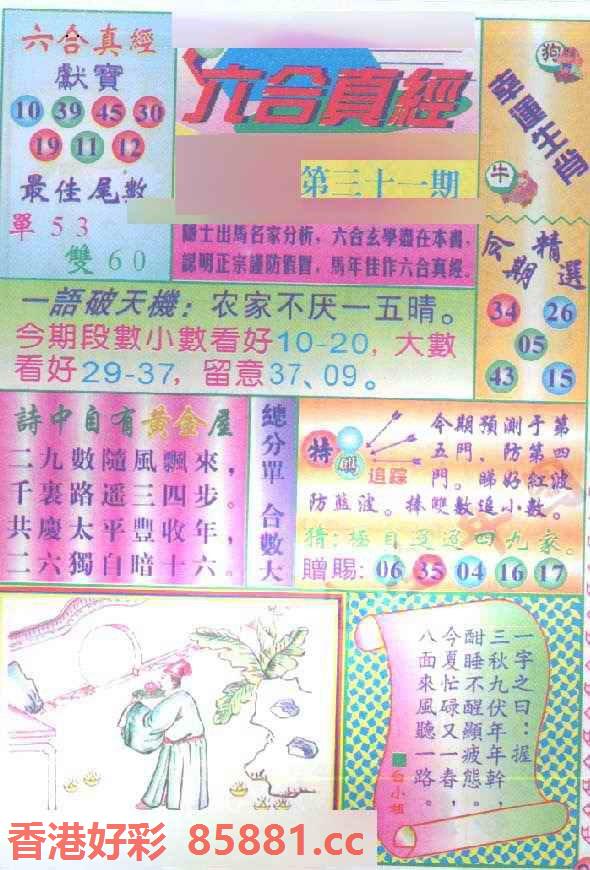 六合真經
獻寶
10 39 45 30
19 11 12
最佳尾數
單 53
雙 60
六合真經
第三十一期
士出馬名家分析，六合玄學盡在本書，
認明正宗謹防假冒，馬年佳作六合真經。
狗
幸運生肖
牛
今期精選
34 26
05
43 15
一語破天機：农家不厌一五晴。
今期段數小數看好10-20，大數
看好29-37，留意37、09。
詩中自有黃金屋
二九數隨風飄來，
千裏路遥三四步。
共慶太平豐收年，
二六獨自暗十六。
總分單 合數大
特
追踪
今期預測于第
五門、防第四
門。睇好紅波
防藍波。捧雙數追小數。
猜：極目四九家。
贈賜：06 35 04 16 17
一字之曰：握
三秋九伏年年幹，
酣睡不醒顯疲態。
今夏忙碌又一春，
八面來風聽一路。
白小姐
香港好彩 85881.cc